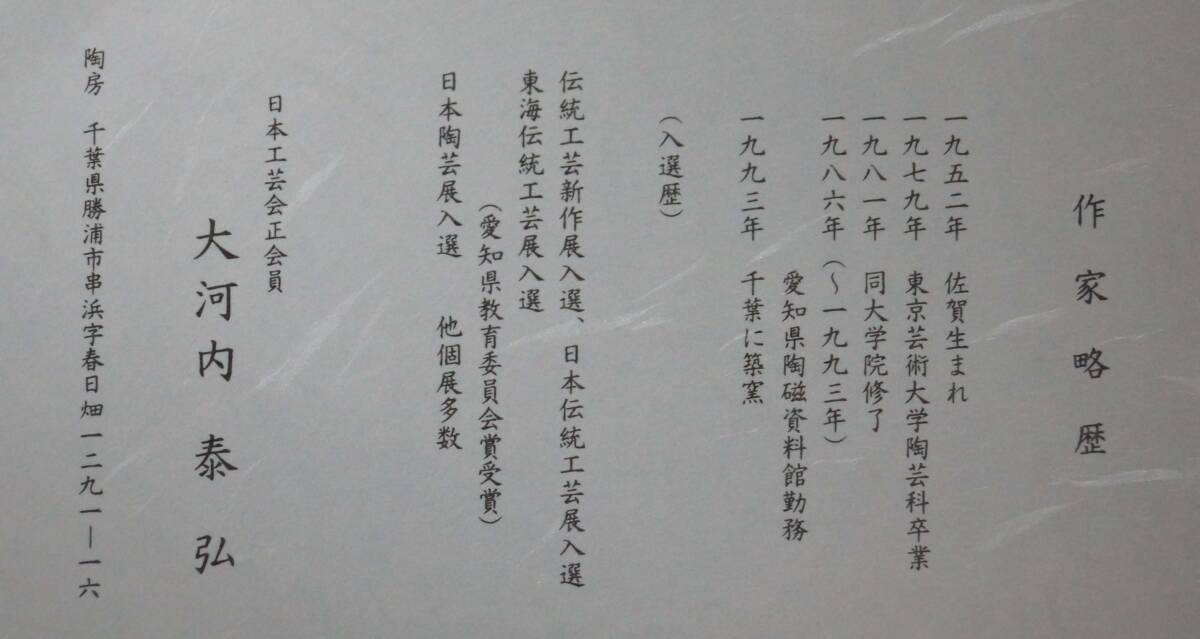 作家略歴
一九五二年 佐賀生まれ
一九七九年 東京芸術大学陶芸科卒業
一九八一年 同大学院修了
一九八六年(〜一九九三年)
愛知県陶磁資料館勤務
一九九三年 千葉に築窯
(入選歴)
伝統工芸新作展入選、日本伝統工芸展入選
東海伝統工芸展入選
(愛知県教育委員会賞受賞)
日本陶芸展入選 他個展多数
日本工芸会正会員
大河内泰弘
陶房 千葉県勝浦市串浜字春日畑一二九一―一六